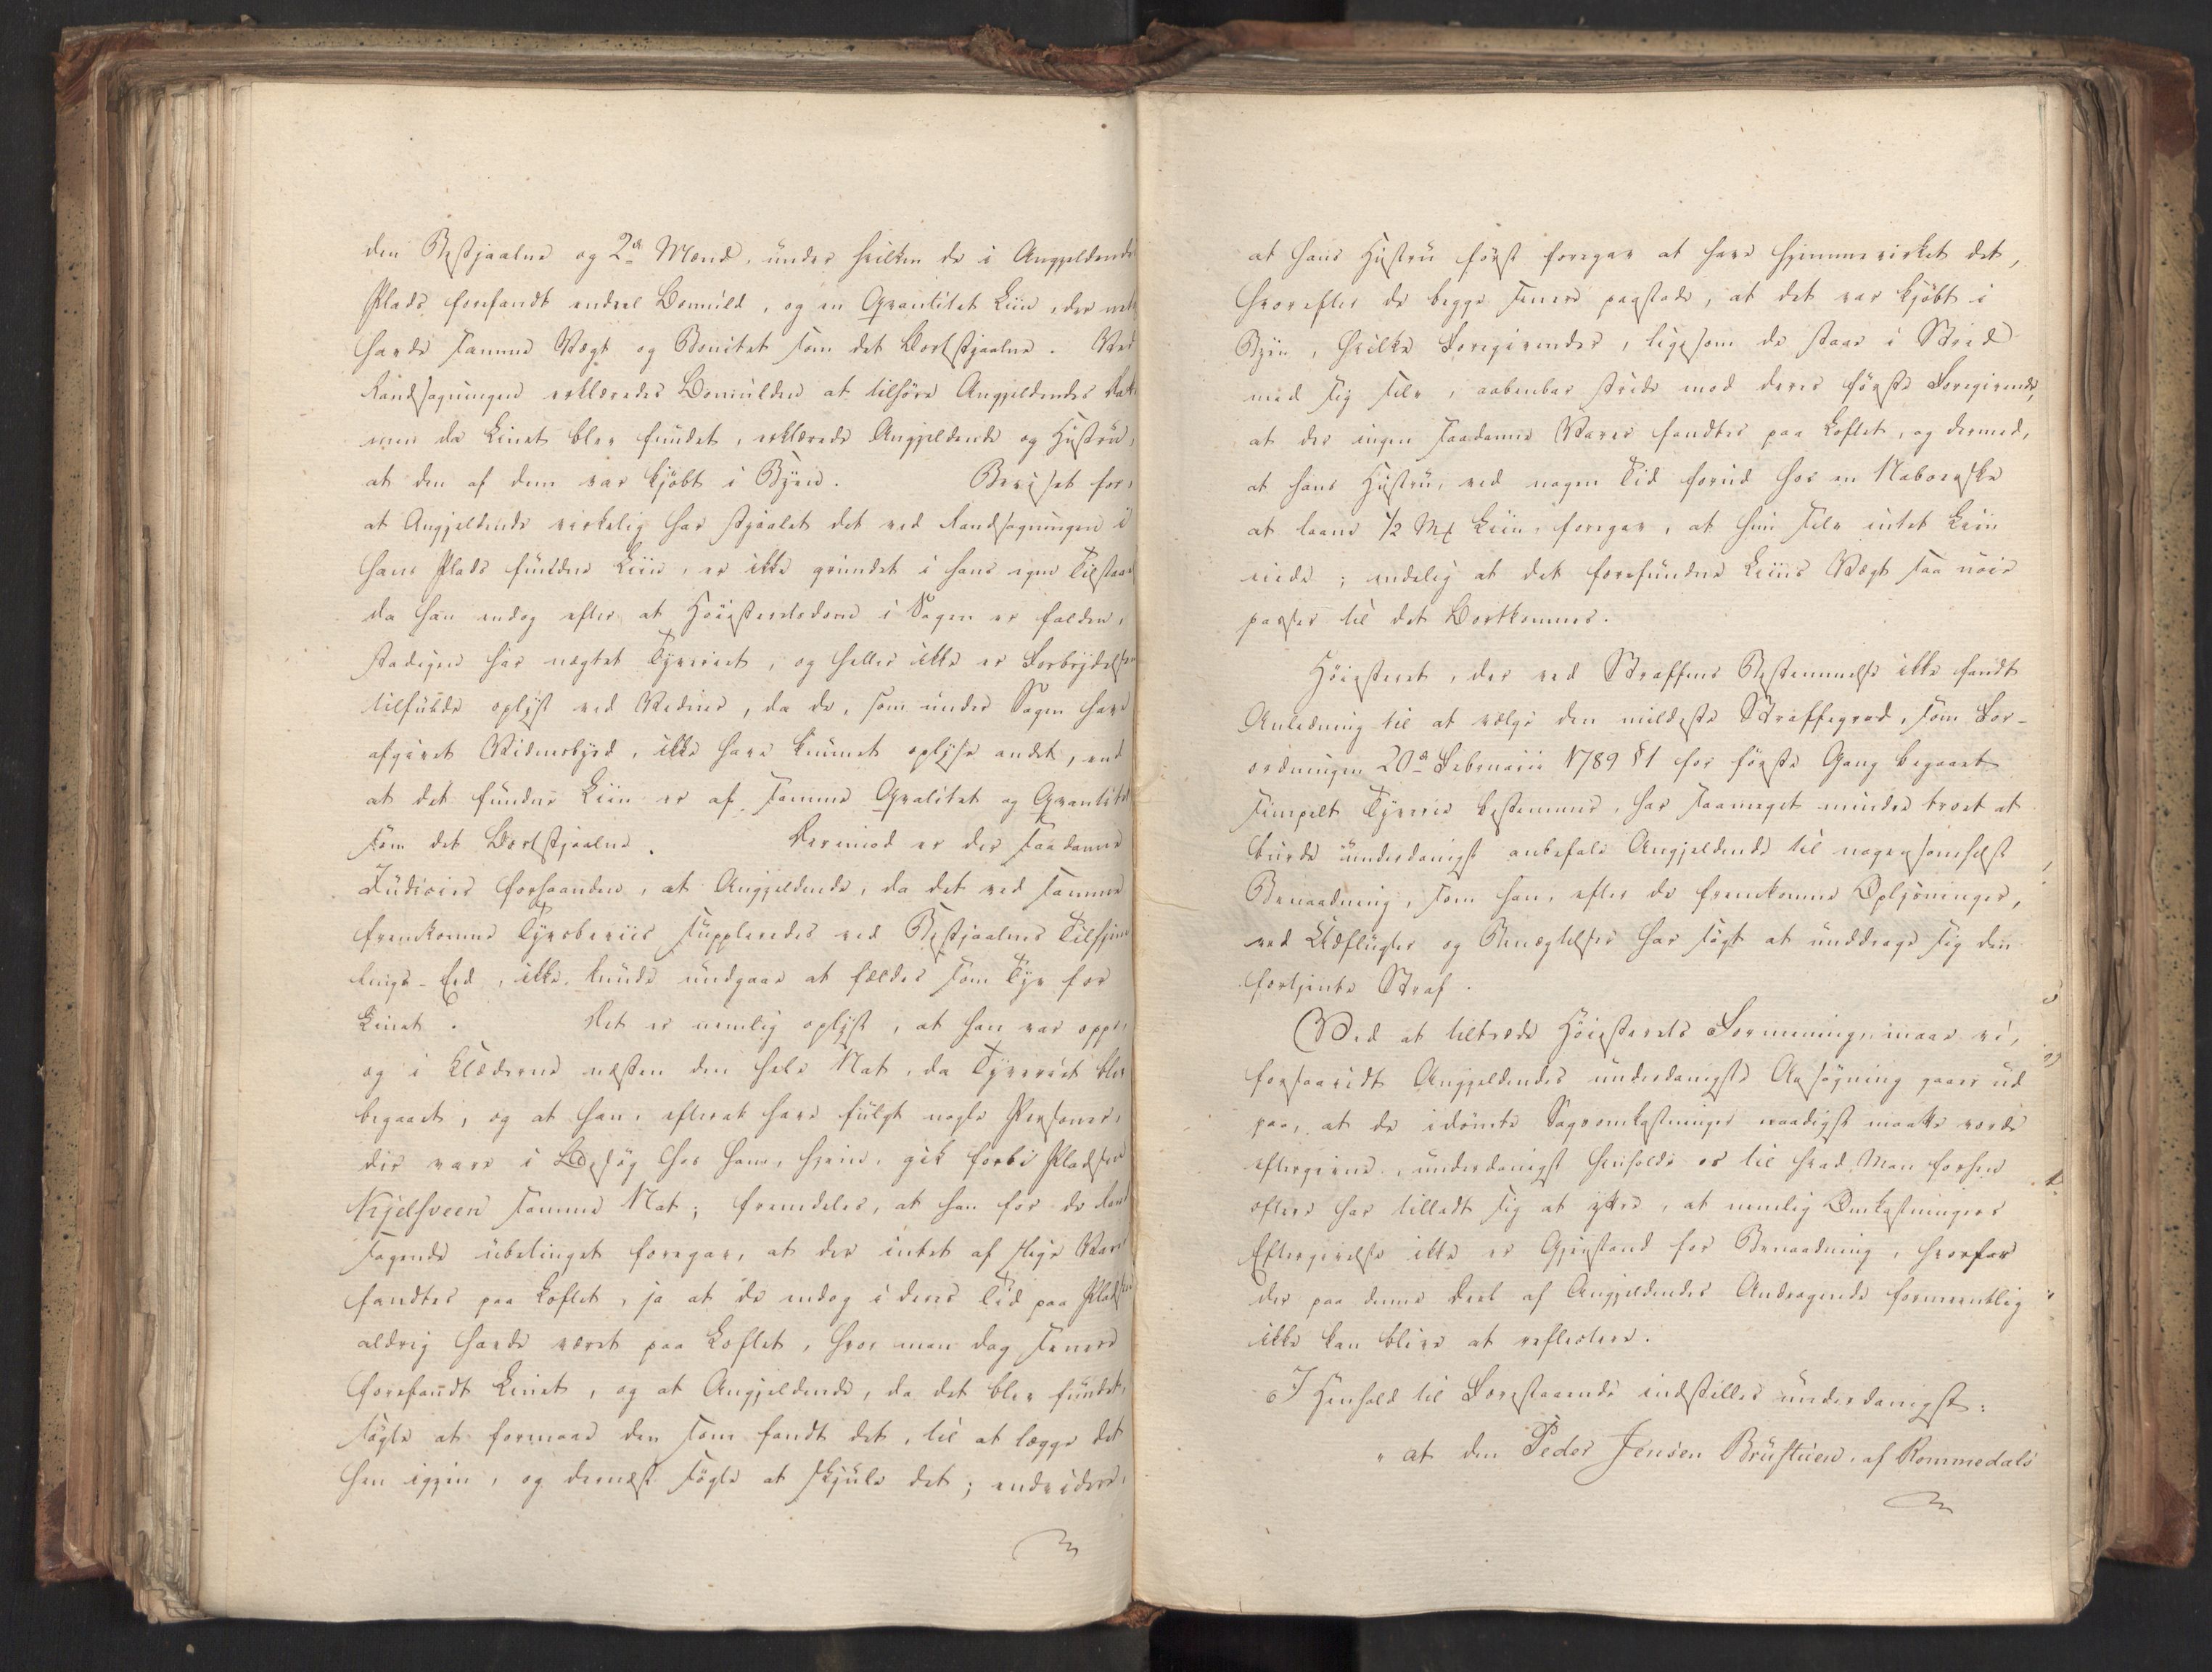 den Bestjaalne og 2de Mænd, under hvilken de i Angjeldendes
Plads forefandt endeel Bomuld, og en Qvantitet Liin, der net
havde samme Vægt og Bonitet som det Bortstjaalne. Ved
Randsagningen erklæredes Bomulden at tilhøre Angjeldendes
men da Linet blev fundet, erklærede Angjeldende og Hustru,
at den af dem var kjøbt i Byen. Beviset for,
at Angjeldende virkelig har stjaalet det ved Randsagningen i
hans Plads fundne Liin, er ikke grundet i hans egen Tilstaae
da han endog efter at Høiesteretsdom i Sagen er falden,
stadigen har nægtet Tyveriet, og heller ikke er Forbrydelsen
tilfulde oplyst ved Vidner, da de, som under Sagen have
afgivet Vidnesbyrd, ikke have kunnet oplyse andet, end
at det fundne Liin er af samme Qvalitet og Qvantitet
som det Bortstjaalne. Derimod er der saadanne
Judicier forhaanden, at Angjeldende, da det ved samme
fremkomne Tyvsbeviis suppleredes ved Bestjaalnes Tilhjem
lings-Eed, ikke kunde undgaae at fældes som Tyv for
Linet. Det er nemlig oplyst, at han var oppe,
og i Klæderne næsten den hele Nat, da Tyveriet blev
begaaet, og at han, efterat have fulgt nogle Personer,
der vare i Besøg hos ham, hjem, gik forbi Pladsen
Kjelsveen samme Nat; fremdeles, at han for de Rand
sagende ubetinget foregav, at der intet af slige Varer
fandtes paa Loftet, ja at de endog i deres Tid paa Pladsen
aldrig havde været paa Loftet, hvor man dog senere
forefandt Linet, og at Angjeldende, da det blev fundet,
søgte at formaae den som fandt det, til at lægge det
hen igjen, og dernæst søgte at skjule det; endvidere,
at hans Hustru først foregav at have hjemmevirket det,
hvorefter de begge senere paastode, at det var kjøbt i
Byen, hvilke Foregivender, ligesom de staae i Strid
med sig selv, aabenbar stride mod deres første Foregivende,
at der ingen saadanne Varer fandtes paa Loftet, og dermed,
at hans Hustru, ved nogen Tid forud hos en Naboerske
at laane 1/2 Mk Liin, foregav, at hun selv intet Liin
eiede; endelig at det forefundne Liins Vægt saa nøie
passer til det Bortkomne.
Høiesteret, der ved Straffens Bestemmelse ikke fandt
Anledning til at vælge den mildeste Straffegrad, som For-
ordningen 20de Februarii 1789 §1 for første Gang begaaet
simpelt Tyverie bestemmer, har saameget mindre troet at
burde underdanigst anbefale Angjeldende til nogensomhelst
Benaadning, som han, efter de fremkomne Oplysninger,
ved Udflugter og Benægtelser har søgt at unddrage sig den
fortjente Straf.
Ved at tiltræde Høiesterets Formening, maae vi,
forsaavidt Angjeldendes underdanigste Ansøgning gaaer ud
paa, at de idømte Sagsomkostninger naadigst maatte vorde
eftergivne, underdanigst henholde os til hvad Man forhen
oftere har tilladt sig at yttre, at nemlig Omkostningers
Eftergivelse ikke er Gjenstand for Benaadning, hvorfor
der paa denne Deel af Angjeldendes Andragende formeentlig
ikke kan blive at reflectere.
I Henhold til Forestaaende indstilles underdanigst:
" at den Peder Jensen Brustuen, af Rommedals